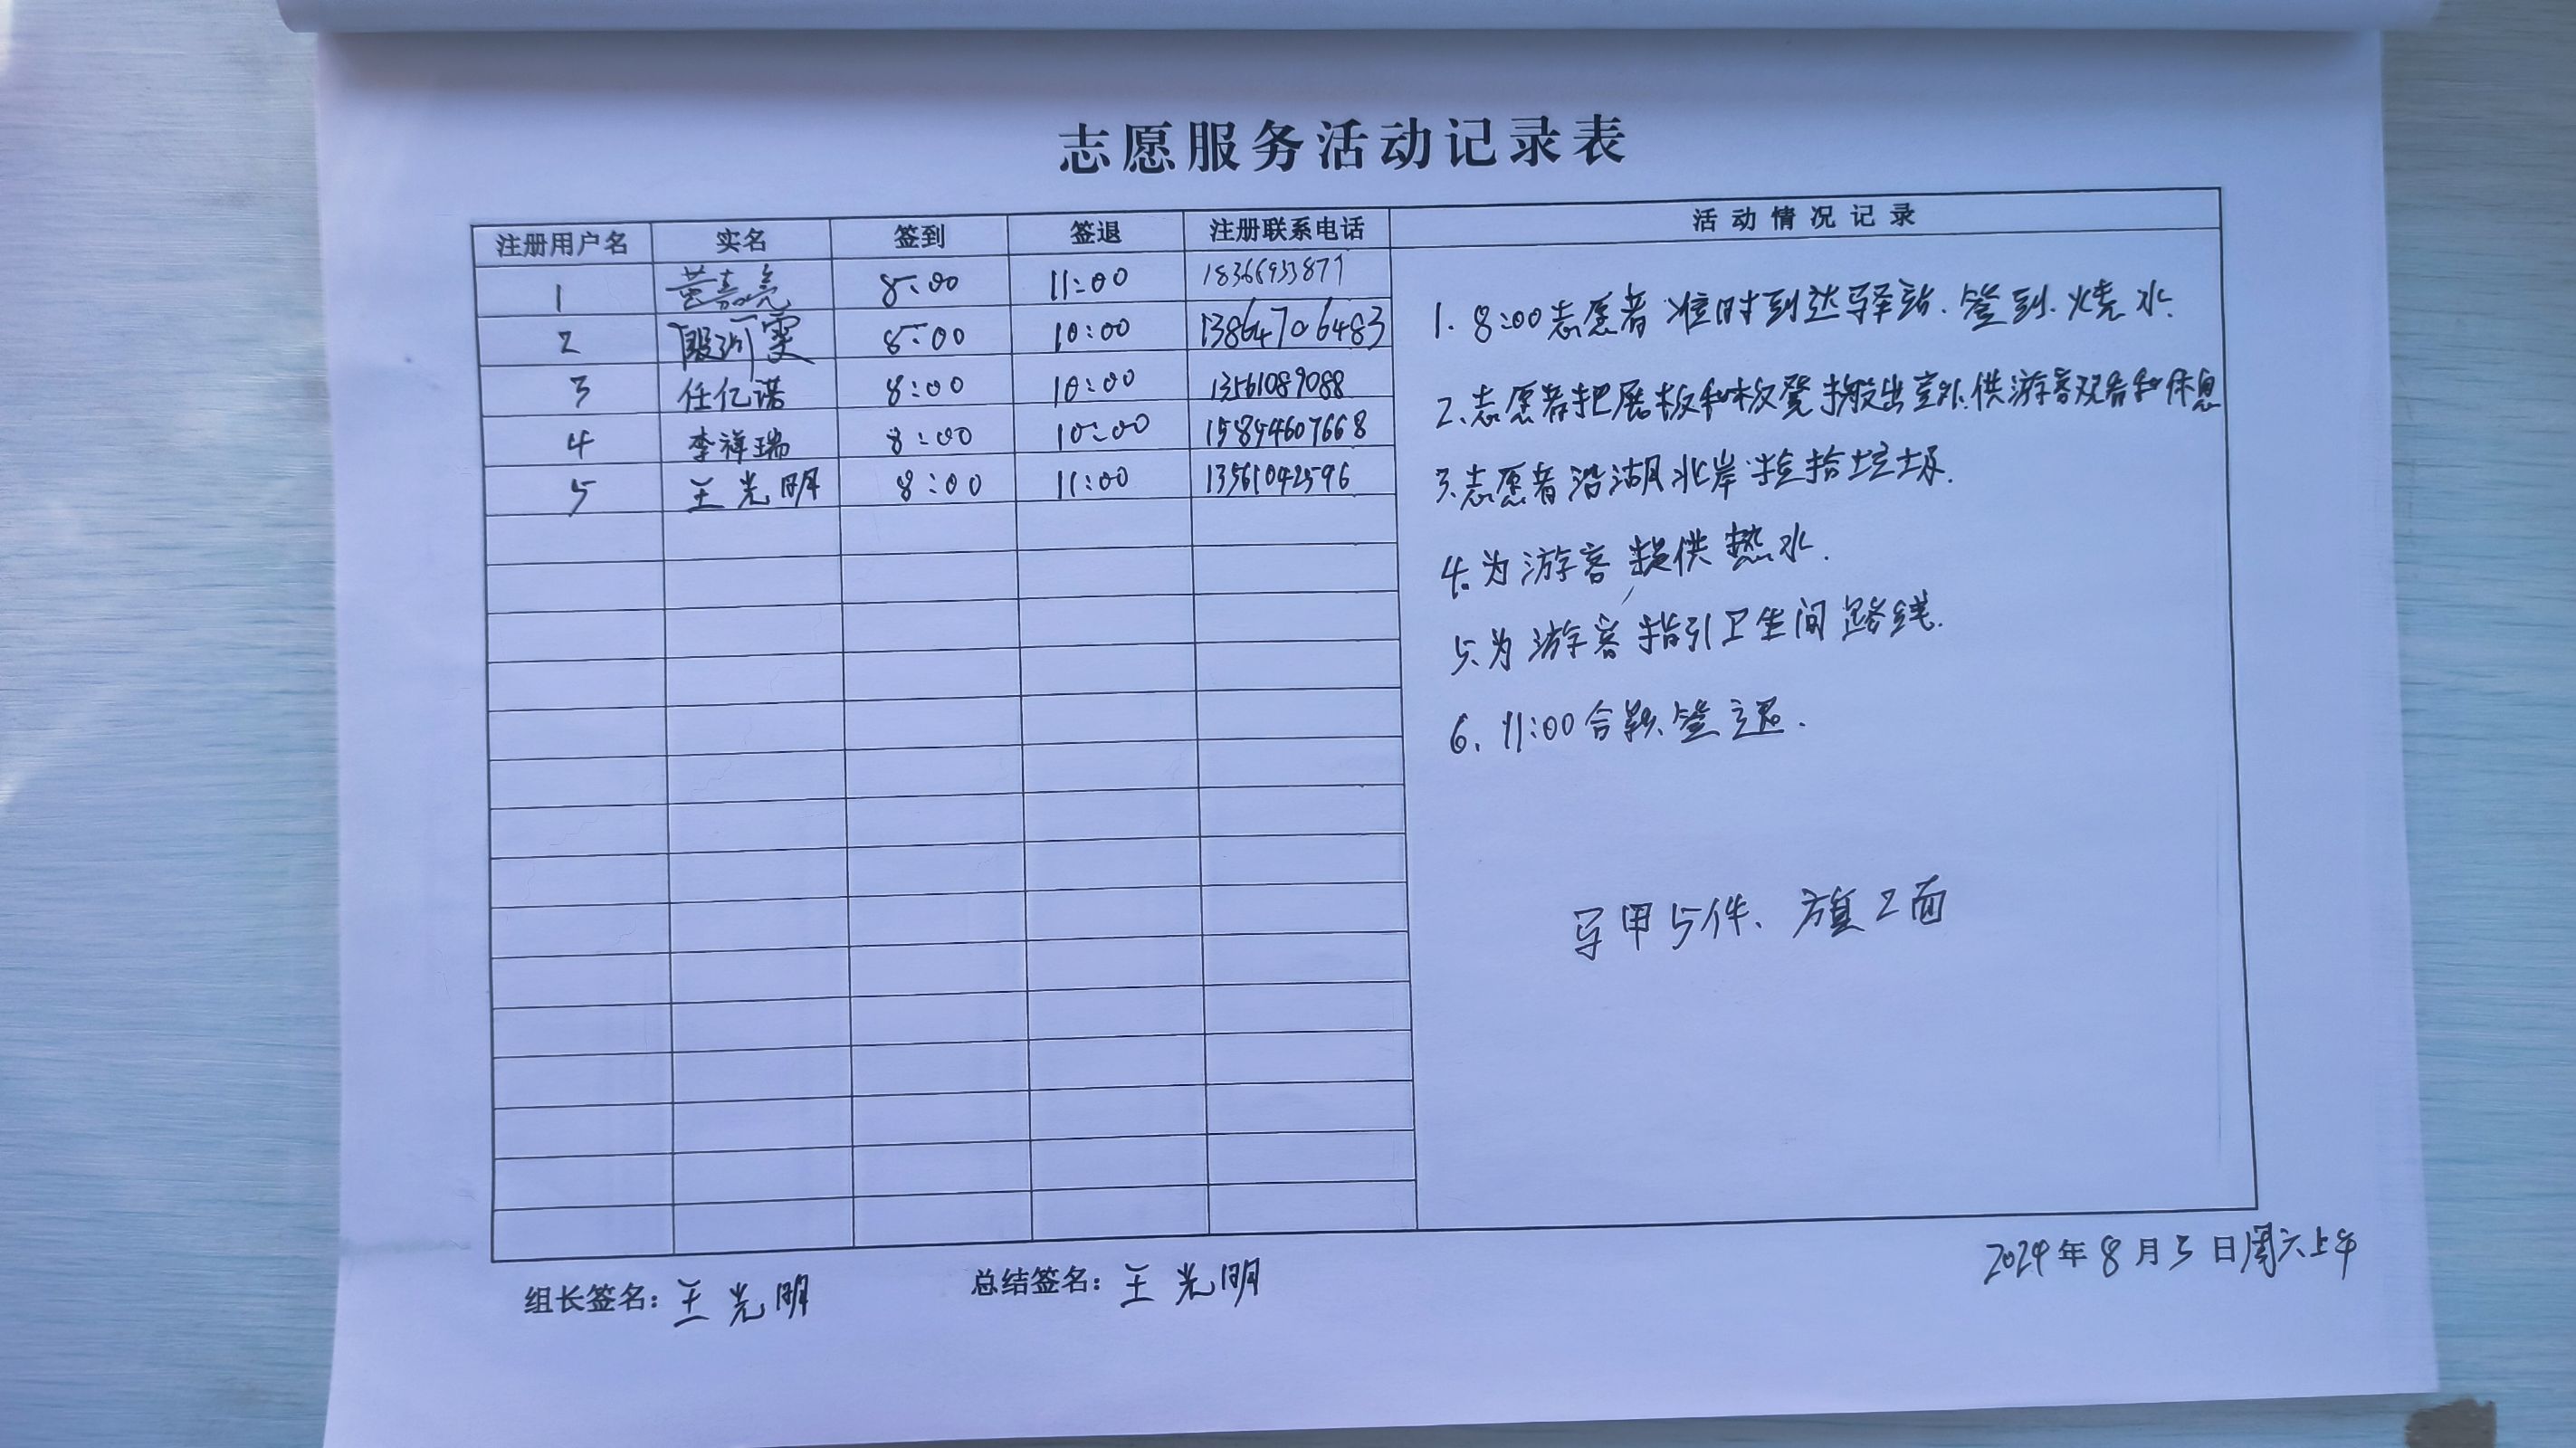 志愿服务活动记录表
注册用户名 实名 签到 签退 注册联系电话 活动情况记录
1 黄嘉亮 8:00 11:00
2 殷训雯 8:00 10:00 13864706483
3 任亿诺 8:00 10:00 13561089088
4 李祥瑞 8:00 10:00 15854607668
5 王光明 8:00 11:00 13561042596
1. 8:00志愿者准时到达驿站.签到.烧水.
2、志愿者把展板和板凳搬出室外.供游客观看和休息
3.志愿者沿湖北岸捡拾垃圾.
4.为游客提供热水.
5.为游客指引卫生间路线.
6. 11:00合影.签退.
马甲5件、旗2面
组长签名：王光明 总结签名：王光明
2024年8月3日周六上午